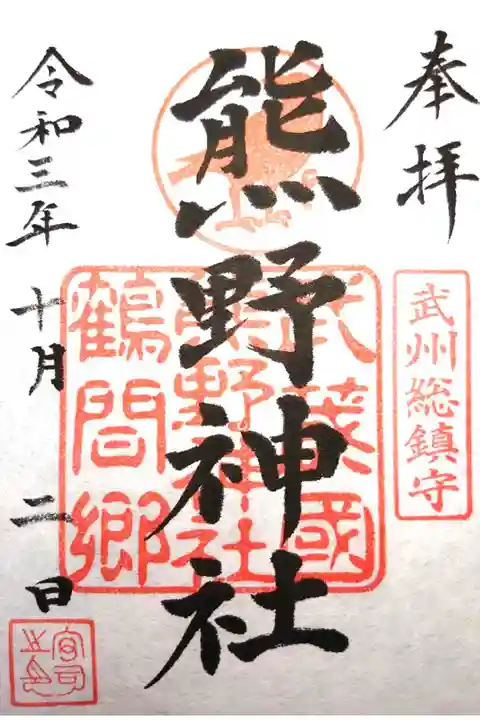 奉拝
武州総鎮守
熊野神社
武茂國
熊野神社
鶴間郷
令和三年 十月 二日
宮司之印